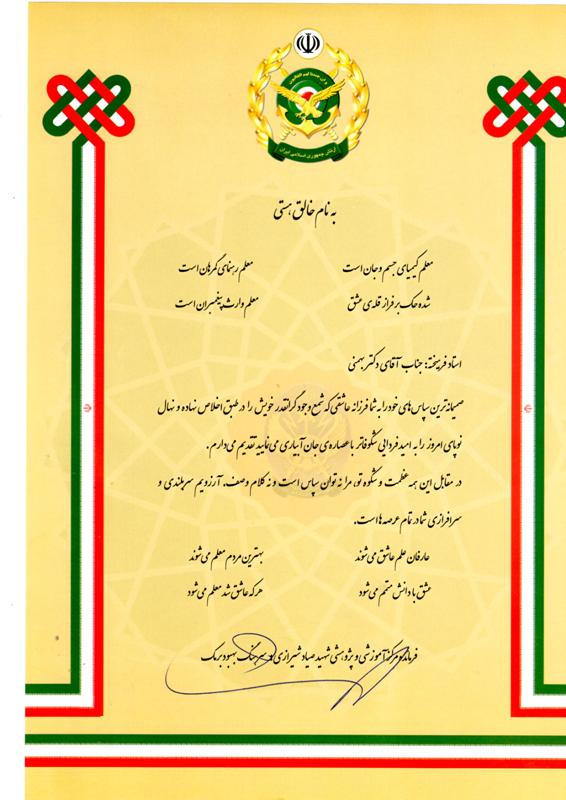 ارتش جمهوری اسلامی ایران
به نام خالق هستی
معلم کیمیای جسم و جان است معلم رهنمای گمرهان است
شده حک بر فراز قله‌ی عشق معلم وارث پیغمبران است
استاد فریخته: جناب آقای دکتر بهمنی
صمیمانه‌ترین سپاس‌های خود را به شما فرزانه عاشقی که شمع وجود گرانقدر خویش را در طبق اخلاص نهاده و نهال
نوپای امروز را به امید فردایی شکوفاتر با عصاره‌ی جان آبیاری می‌نمایید تقدیم می‌دارم.
در مقابل این همه عظمت و شکوه تو، مرا نه توان سپاس است و نه کلام وصف. آرزویم سربلندی و
سرافرازی شما در تمام عرصه‌ها است.
عارفان علم عاشق می‌شوند بهترین مردم معلم می‌شوند
عشق با دانش متمم می‌شود هر که عاشق شد معلم می‌شود
فرمانده مرکز آموزشی و پژوهشی شهید صیاد شیرازی سرهنگ بهبود برمک